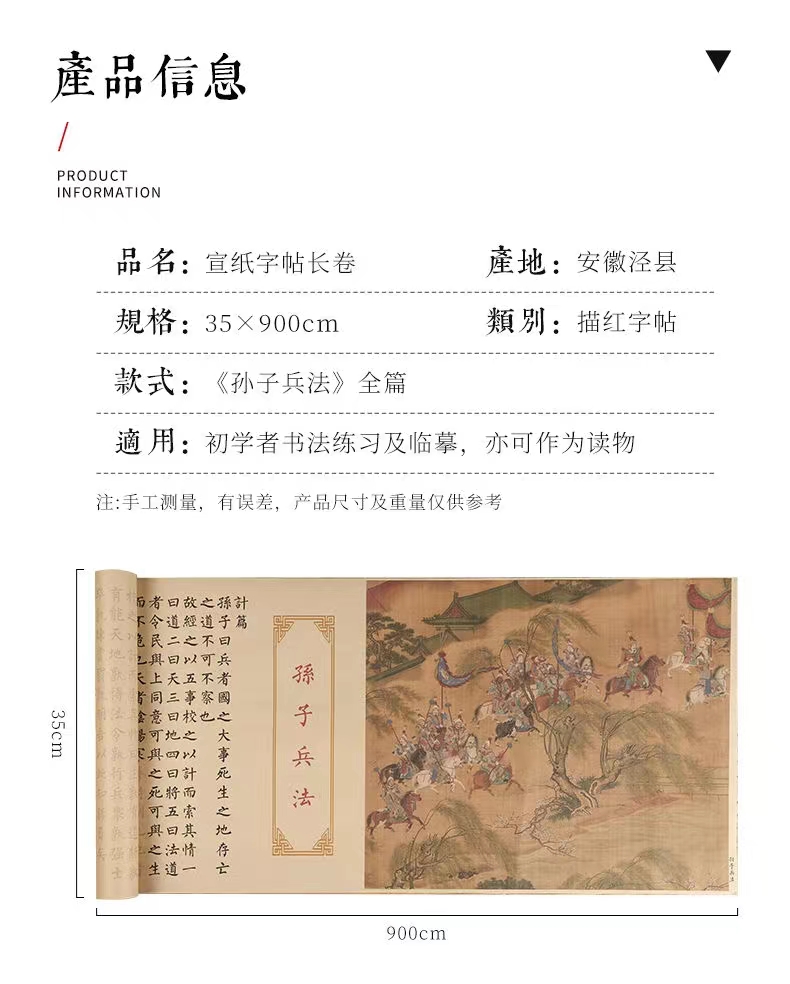 產品信息
PRODUCT
INFORMATION
品名：宣纸字帖长卷
產地：安徽泾县
規格：35×900cm
類別：描红字帖
款式：《孙子兵法》全篇
適用：初学者书法练习及临摹，亦可作为读物
注:手工测量，有误差，产品尺寸及重量仅供参考
35cm
孫子兵法
計篇
孫子曰兵者國之大事死生之地存亡
之道不可不察也
故經之以五事校之以計而索其情一
曰道二曰天三曰地四曰將五曰法道
者令民與上同意可與之死可與之生
孙子兵法
900cm